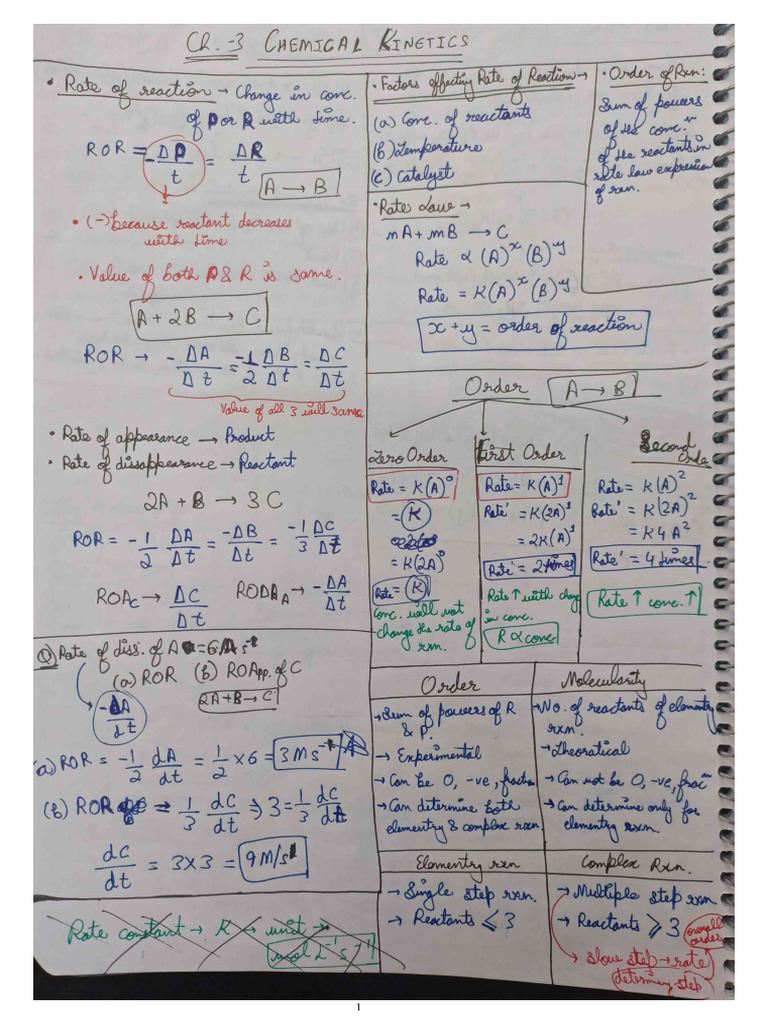 Ch.-3 CHEMICAL KINETICS
• Rate of reaction → Change in conc.
of P or R with time.
ROR = -ΔP/t = ΔR/t
A → B
• (-) because reactant decreases
with time
• Value of both P & R is same.
A + 2B → C
ROR → -ΔA/Δt = -1/2 ΔB/Δt = ΔC/Δt
Value of all 3 will same
• Rate of appearance → Product
• Rate of dissappearance → Reactant
2A + B → 3C
ROR = -1/2 ΔA/Δt = -ΔB/Δt = -1/3 ΔC/Δt
ROAc → ΔC/Δt RODA → -ΔA/Δt
Q) Rate of diss. of A = 6 M s⁻¹
(a) ROR (b) ROApp. of C
-dA/dt
2A+B→C
(a) ROR = -1/2 dA/dt = 1/2 × 6 = 3 M s⁻¹
(b) ROR = 1/3 dC/dt ⇒ 3 = 1/3 dC/dt
dC/dt = 3×3 = 9 M/s
Rate constant → K → unit →
mol L⁻¹ s⁻¹
• Factors effecting Rate of Reaction →
(a) Conc. of reactants
(b) Temperature
(c) Catalyst
• Order of Rxn:
Sum of powers
of the conc.ⁿ
of the reactants in
rate law expression
of rxn.
• Rate Law →
nA + mB → C
Rate ∝ (A)ˣ (B)ʸ
Rate = K(A)ˣ (B)ʸ
x + y = order of reaction
Order A → B
Zero Order
Rate = K(A)⁰
= K
= K(2A)⁰
Rate = K
Conc. will not
change the rate of
rxn.
First Order
Rate = K(A)¹
Rate' = K(2A)¹
= 2K(A)¹
Rate' = 2 times
Rate ↑ with chang
in conc.
R ∝ conc
Second
Orde
Rate = K(A)²
Rate' = K(2A)²
= K4A²
Rate' = 4 times
Rate ↑ conc. ↑
Order
→ Sum of powers of R
& P.
→ Experimental
→ Can be 0, -ve, fraction
→ Can determine both
elementry & complex rxn
Molecularity
→ No. of reactants of elementry
rxn.
→ Theoratical
→ Can not be 0, -ve, fracⁿ
→ Can determine only for
elementry rxn.
Elementry rxn
→ Single step rxn.
→ Reactants ⩽ 3
Complex Rxn.
→ Multiple step rxn
→ Reactants ⩾ 3
overall
order
→ slow step → rate
determining step
1